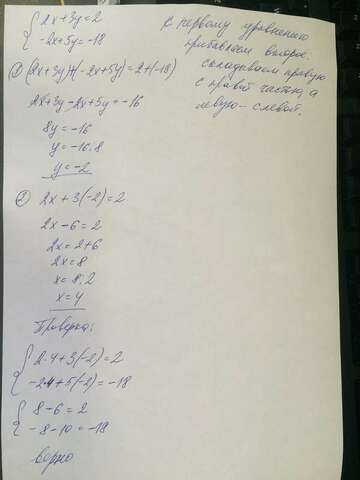 { 2x+3y=2
-2x+5y=-18
К первому уравнению
прибавляем второе:
складываем правую
с правой частью, а
левую - с левой.
① (2x+3y)+(-2x+5y)=2+(-18)
2x+3y-2x+5y=-16
8y=-16
y=-16:8
y=-2
② 2x+3(-2)=2
2x-6=2
2x=2+6
2x=8
x=8:2
x=4
Проверка:
{ 2·4+3(-2)=2
-2·4+5(-2)=-18
{ 8-6=2
-8-10=-18
верно